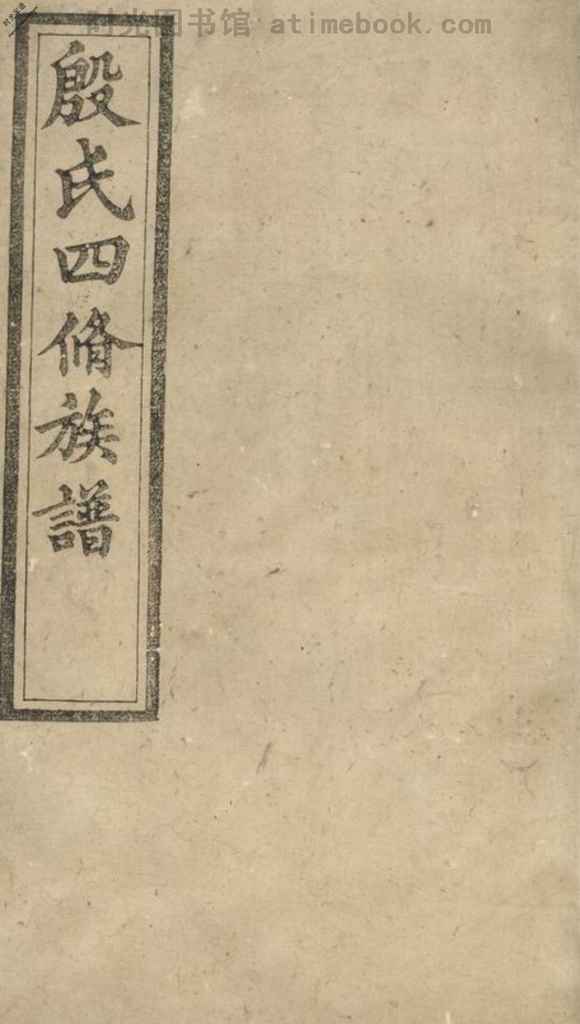 时光图书馆 atimebook.com
殷氏四脩族譜